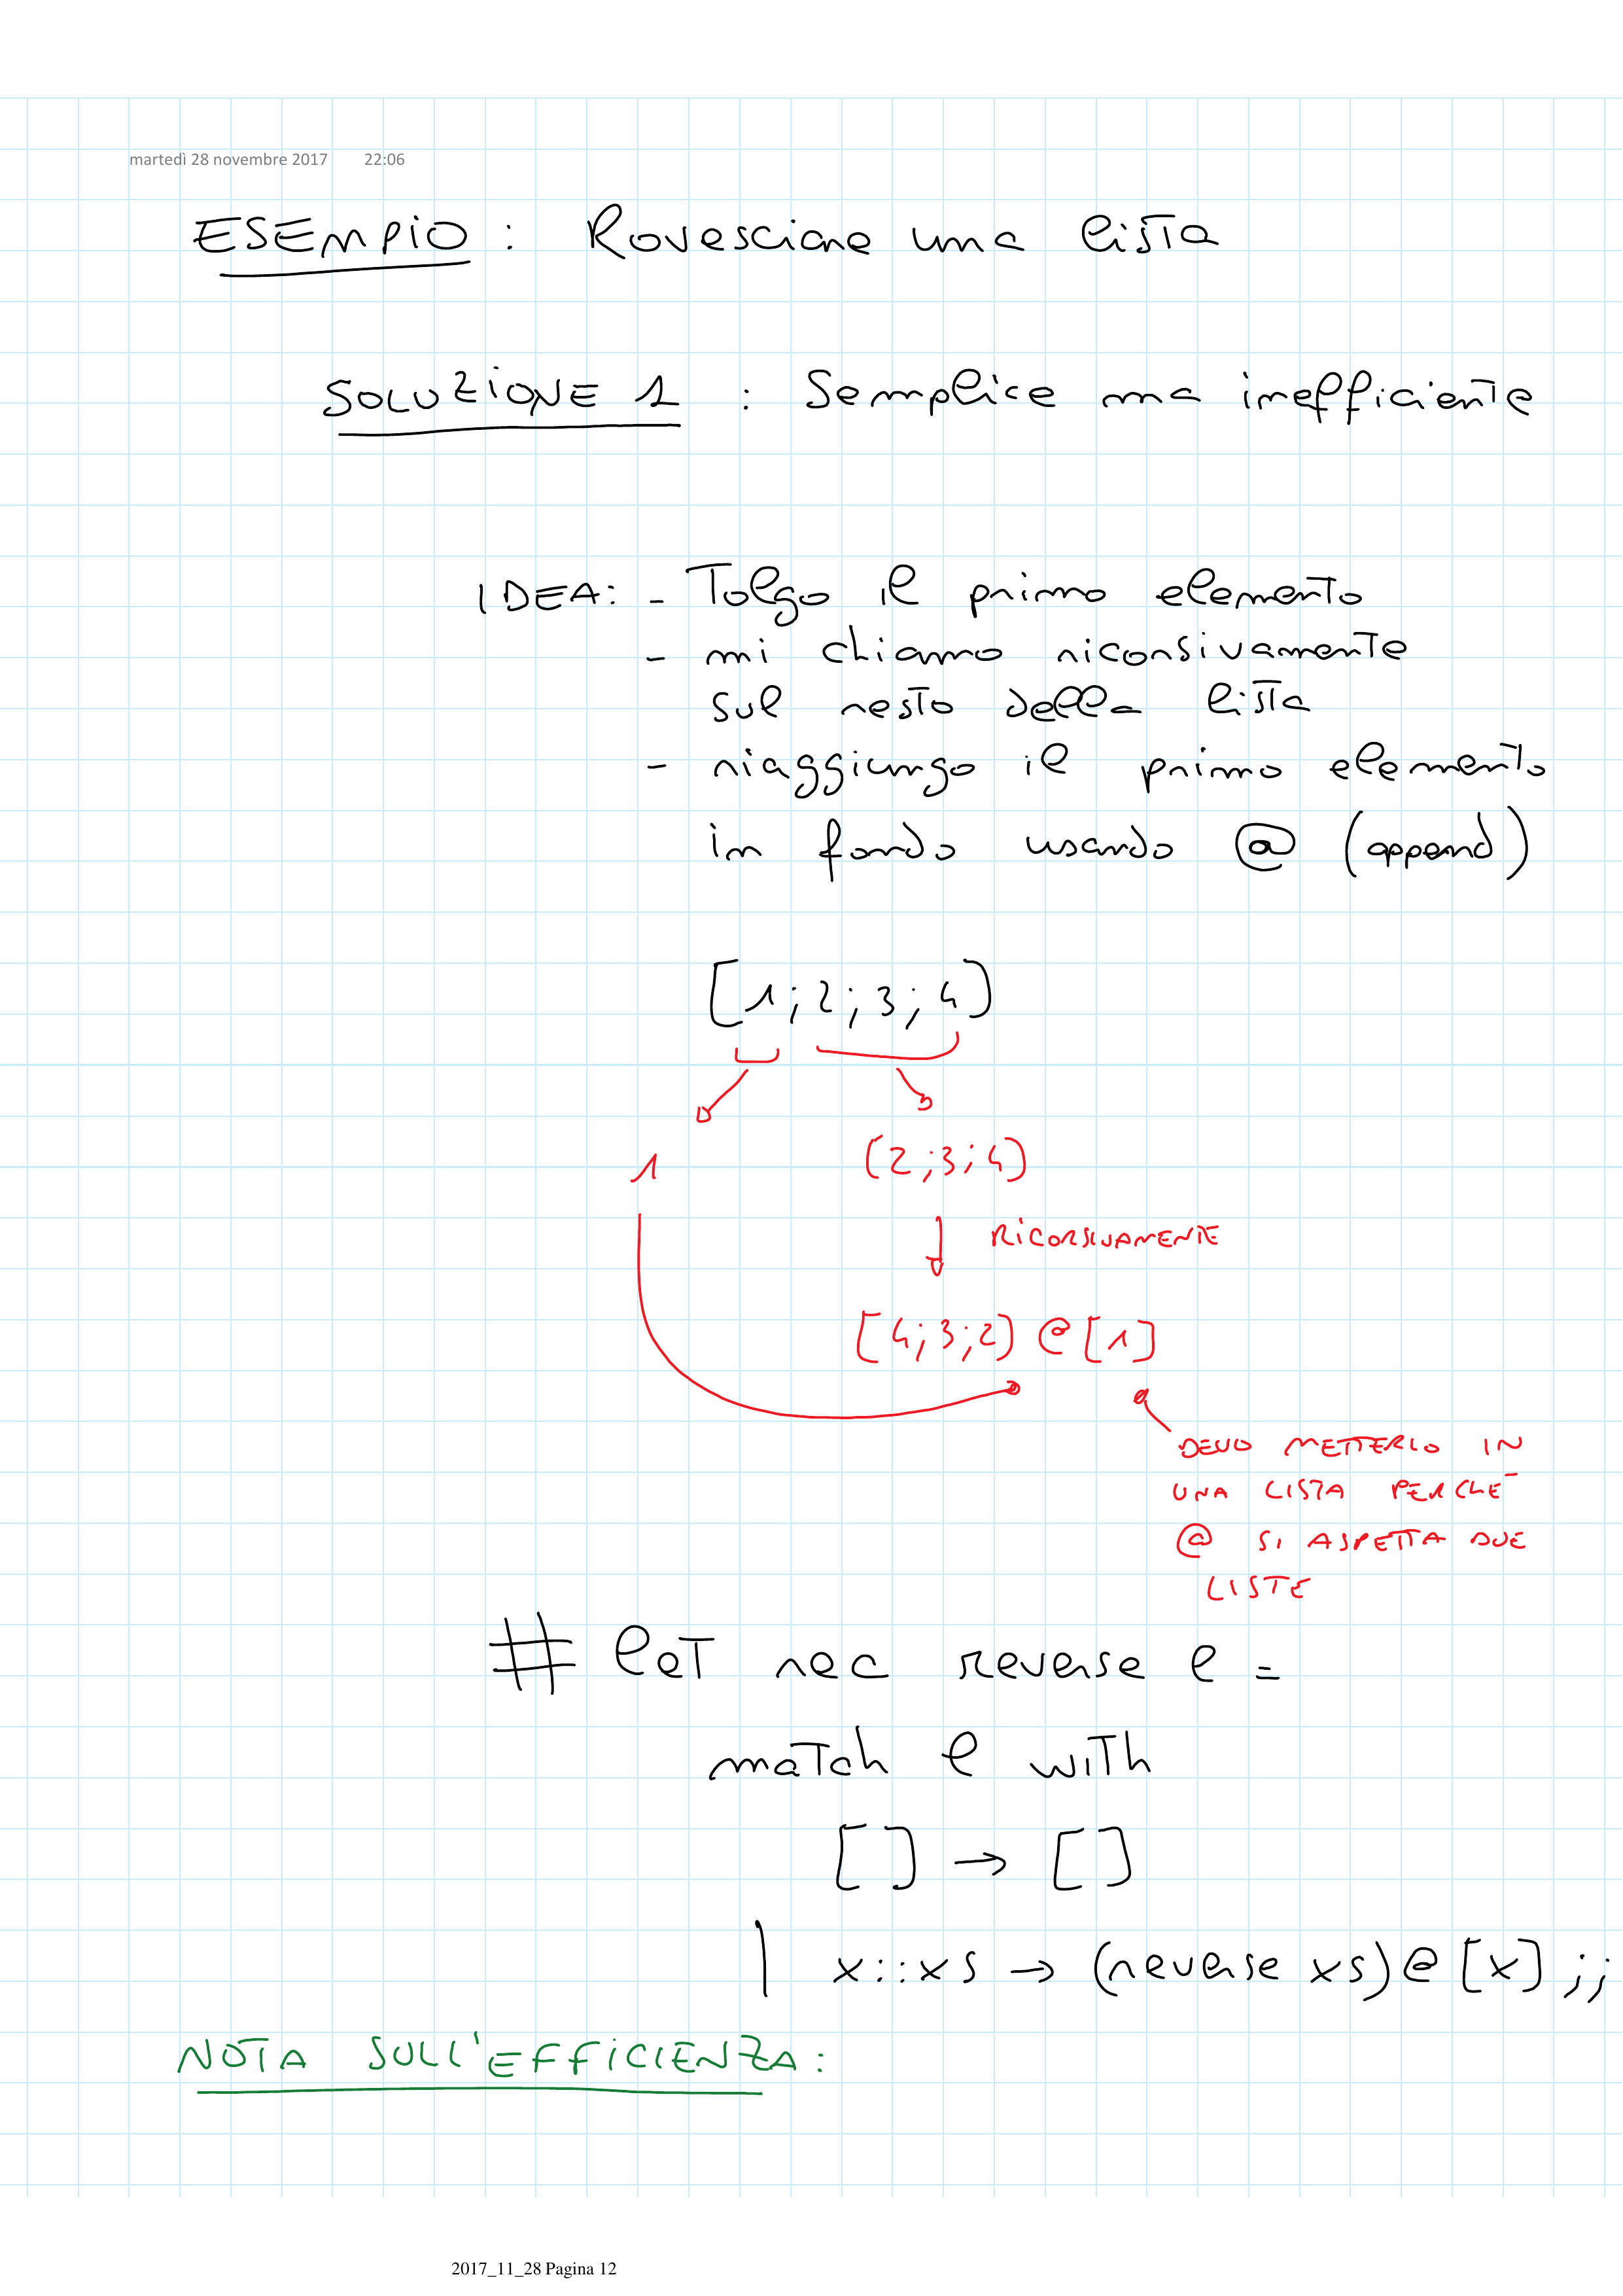 martedì 28 novembre 2017 22:06
ESEMPIO : Rovesciare una lista
SOLUZIONE 1 : Semplice ma inefficiente
IDEA: - Tolgo il primo elemento
- mi chiamo ricorsivamente
sul resto della lista
- riaggiungo il primo elemento
in fondo usando @ (append)
[1;2;3;4]
1 [2;3;4]
RICORSIVAMENTE
[4;3;2] @ [1]
DEVO METTERLO IN
UNA LISTA PERCHÉ
@ SI ASPETTA DUE
LISTE
# let rec reverse l =
match l with
[] → []
| x::xs → (reverse xs)@[x] ;;
NOTA SULL'EFFICIENZA:
2017_11_28 Pagina 12